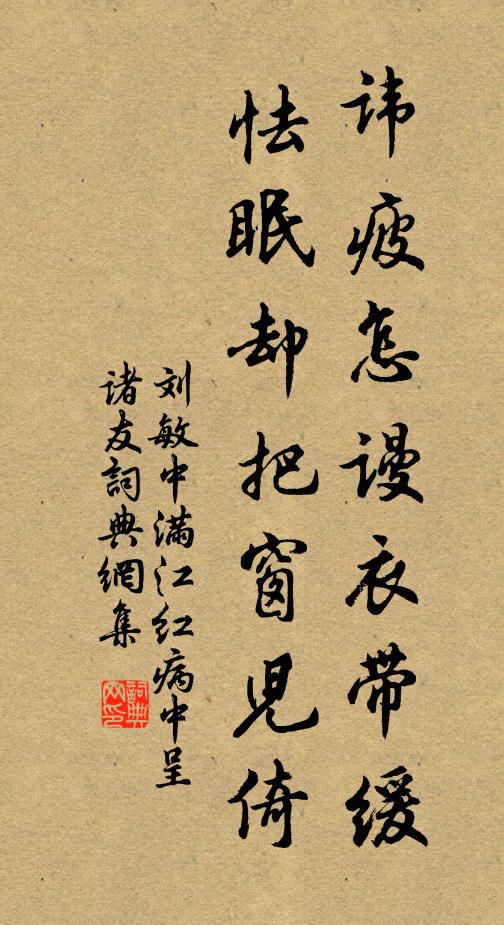 讳瘦怎谩衣带缓
怯眠却把窗児倚
刘敏中满江红病中呈
诸友詞典網集
詞典网印